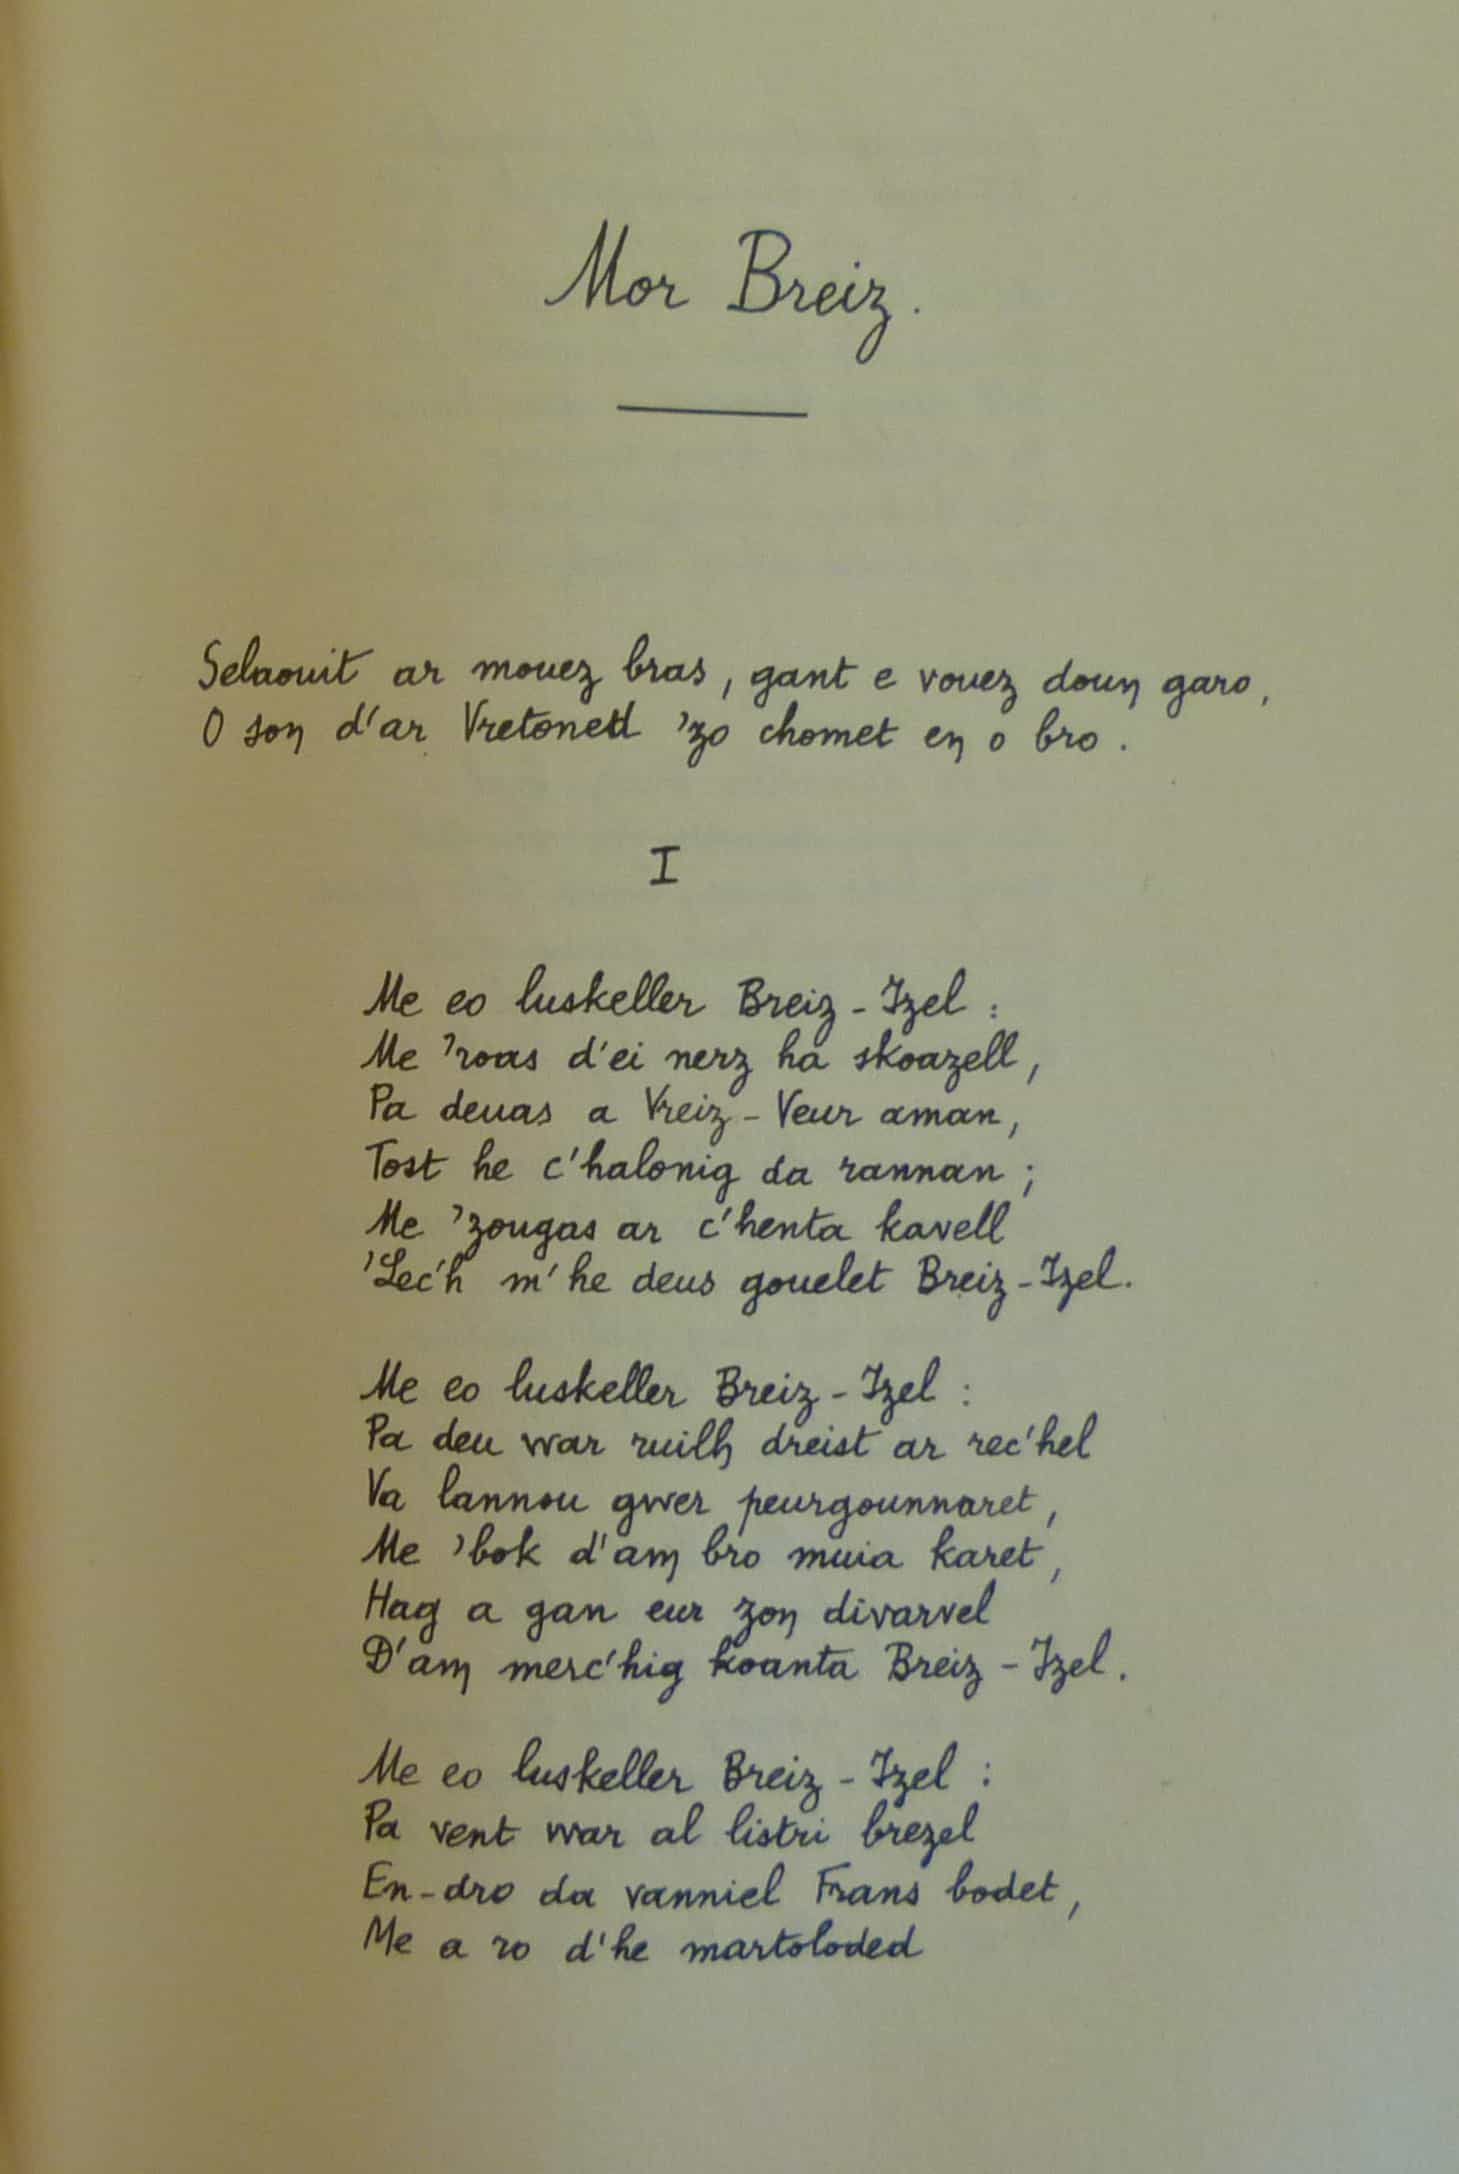 Mor Breiz.
Selaouit ar mouez bras, gant e vouez douŋ garo,
O soŋ d'ar Vretoned 'zo chomet eŋ o bro.
I
Me eo luskeller Breiz-Izel :
Me 'roas d'ei nerz ha skoazell,
Pa deuas a Vreiz-Veur aman,
Tost he c'halonig da rannan ;
Me 'zougas ar c'henta kavell
'Lec'h m'he deus gouelet Breiz-Izel.
Me eo luskeller Breiz-Izel :
Pa deu war ruilh dreist ar rec'hel
Va lannou gwer peurgounnaret,
Me 'bok d'am bro muia karet,
Hag a gan eur zoŋ divarvel
D'am merc'hig koanta Breiz-Izel.
Me eo luskeller Breiz-Izel :
Pa vent war al listri brezel
En-dro da vanniel Frans bodet,
Me a ro d'he martoloded